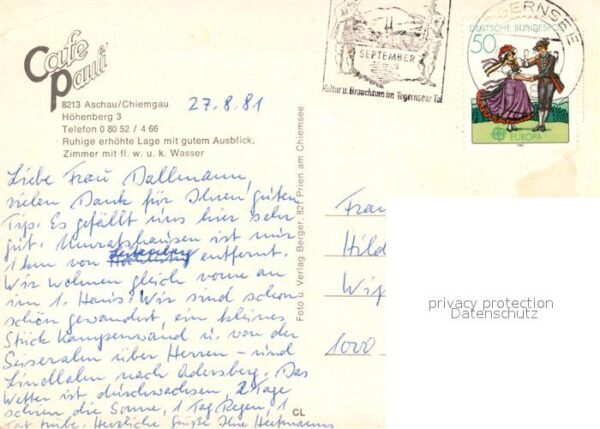 Cafe
Pauli
8213 Aschau/Chiemgau
Höhenberg 3
Telefon 0 80 52 / 4 66
Ruhige erhöhte Lage mit gutem Ausblick,
Zimmer mit fl. w. u. k. Wasser
27.8.81
Liebe Frau Dallmann,
vielen Dank für Ihren guten
Tip. Es gefällt uns hier sehr
gut. ist nur
1 km von entfernt.
Wir wohnen gleich vorne an
im 1. Haus. Wir sind schon
schön gewandert, ein kleines
Stück Kampenwand u. von der
Seiseralm über Herren- und
Lindlalm nach Adersberg. Das
Wetter ist durchwachsen, 2 Tage
schien die Sonne, 1 Tag Regen, 1
Tag trübe. Herzliche Grüße Ihre
Foto u. Verlag Berger, 821 Prien am Chiemsee
CL
SEPTEMBER
Kultur u. Brauchtum im Tegernseer Tal
TEGERNSEE
DEUTSCHE BUNDESPOST
50
EUROPA
1981
Frau
Hild
1000
privacy protection
Datenschutz